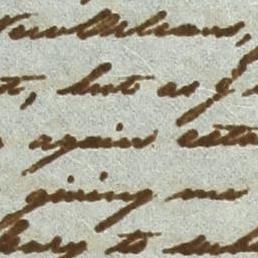 New Orleans,
t, but as I
again retu
giving me
to